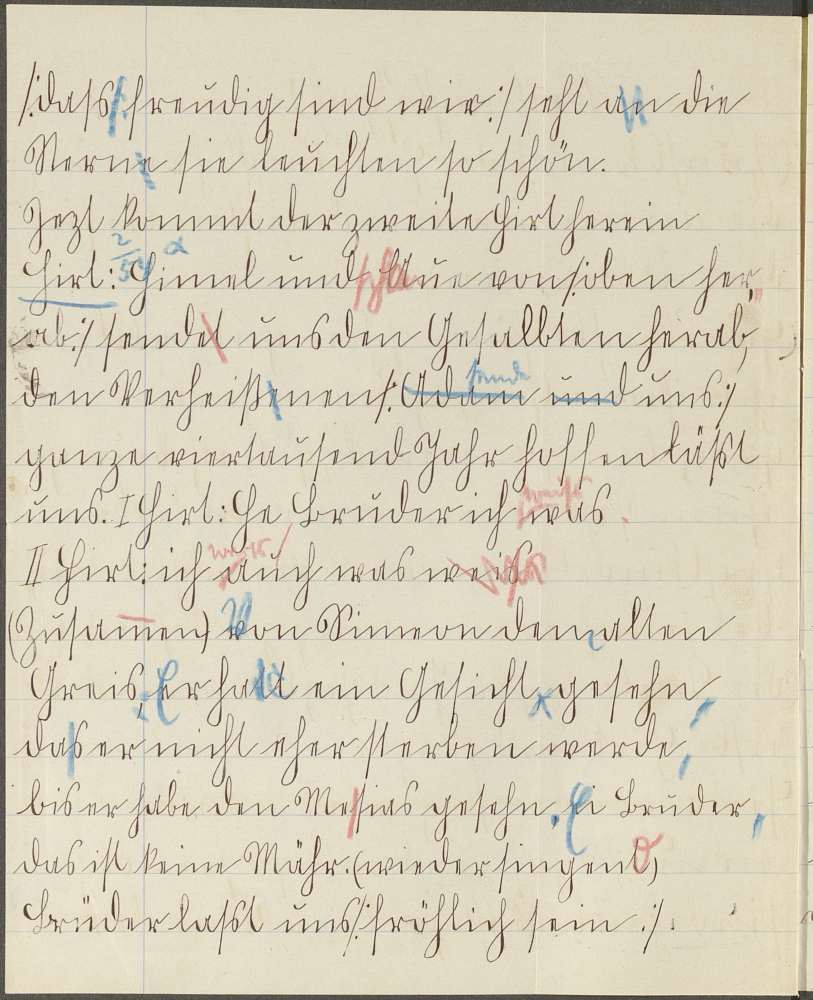 /:dass/:freudig sind wir:/ seht an die
Sterne sie leuchten so schön.
Jezt kommt der zweite Hirt herein
2/54 α
Hirt: Himel und Aue von/:oben her,,
ab:/ sendet uns den Gesalbten herab,
sende
den Verheißenen/:Adam und uns:/
ganze viertausend Jahr hoffen läßt
weiß
uns. I Hirt: He Bruder ich was.
weiß
II Hirt: ich auch was weis
(Zusamen) von Simeon dem alten
Greis, Er hatt ein Gesicht gesehn,
das er nicht eher sterben werde,
bis er habe den Messias gesehn. Ei Bruder,
das ist keine Mähr. (wieder singent)
Brüder lasst uns/:fröhlich sein:/.